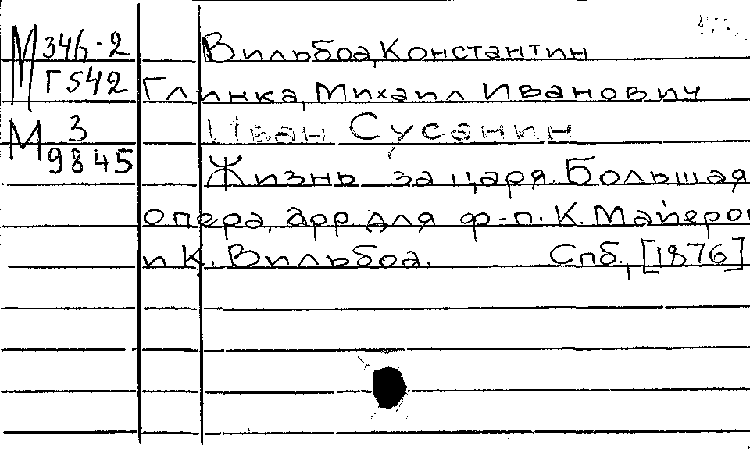 М 346-2 Вильбоа, Константин
Г542 Глинка, Михаил Иванович
М 3 Иван Сусанин
9845 Жизнь за царя. Большая
опера, арр. для ф-п. К. Майеро
и К. Вильбоа. Спб., [1876]